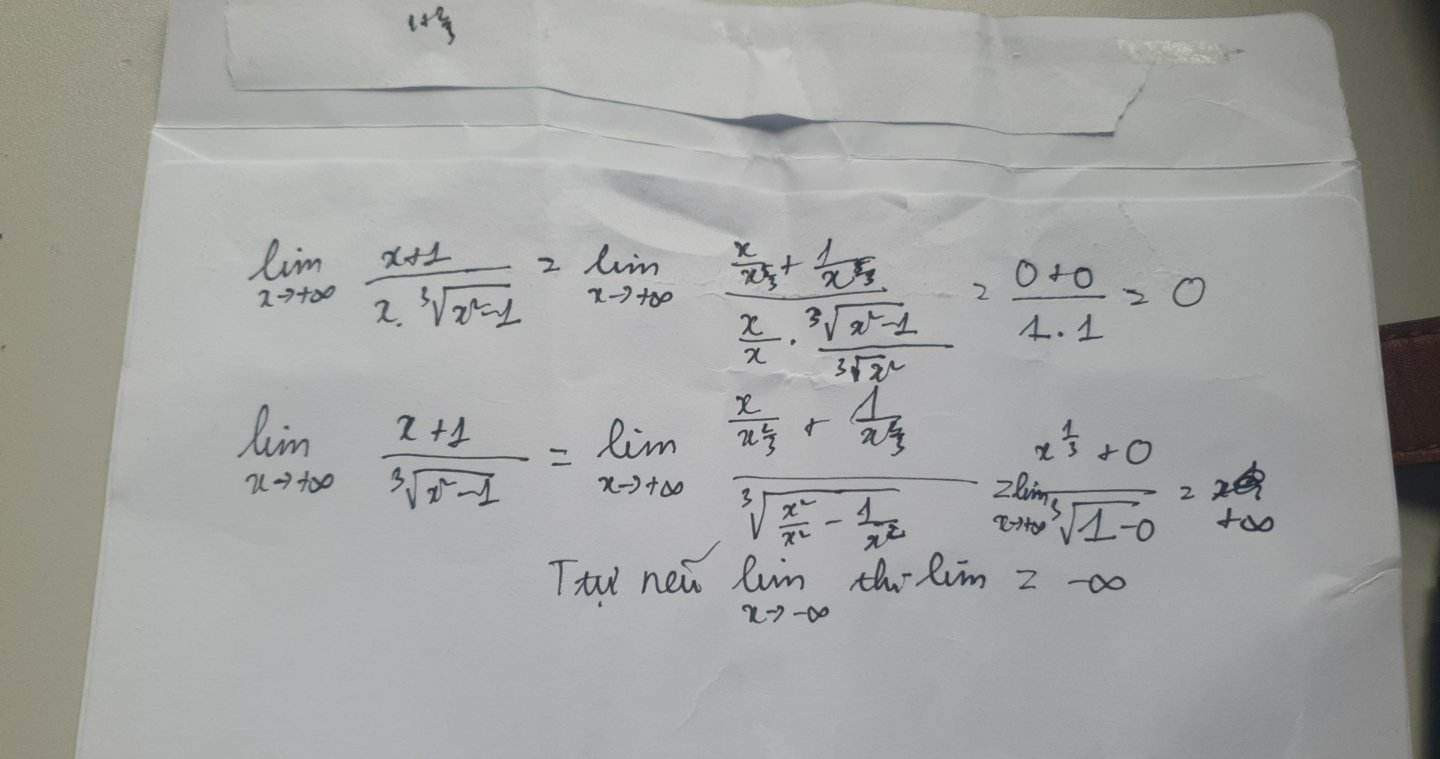 1+2/3
lim x→+∞ (x+1)/(x.∛(x²-1)) = lim x→+∞ (x/x^(5/3) + 1/x^(5/3))/(x/x . ∛(x²-1)/∛x²) = (0+0)/(1.1) = 0
lim x→+∞ (x+1)/∛(x²-1) = lim x→+∞ (x/x^(2/3) + 1/x^(2/3))/∛(x²/x² - 1/x²) = lim x→+∞ (x^(1/3)+0)/∛(1-0) = +∞
Ttự nếu lim x→-∞ thì lim = -∞